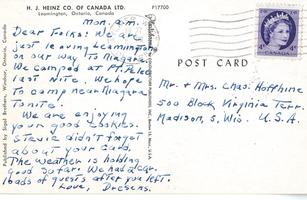 H. J. HEINZ CO. OF CANADA LTD.
Leamington, Ontario, Canada
P17700
Mon. a.m.
Dear Folks: We are
just leaving Leamington
on our way To Niagara.
We camped at Pt. Pelee
last Nite. We hope
To camp near Niagara
Tonite.
We are enjoying
your good cookies.
Stevie didn't forget
about your card.
The weather is holding
good so far. We had a car-
loads of guests after you left.
Love, Dresens.
Published by Sigal Brothers, Windsor, Ontario, Canada
POST CARD
Mr. & Mrs. Chas. Hoffhine
500 Block Virginia Terr.
Madison, 5, Wis. U.S.A.